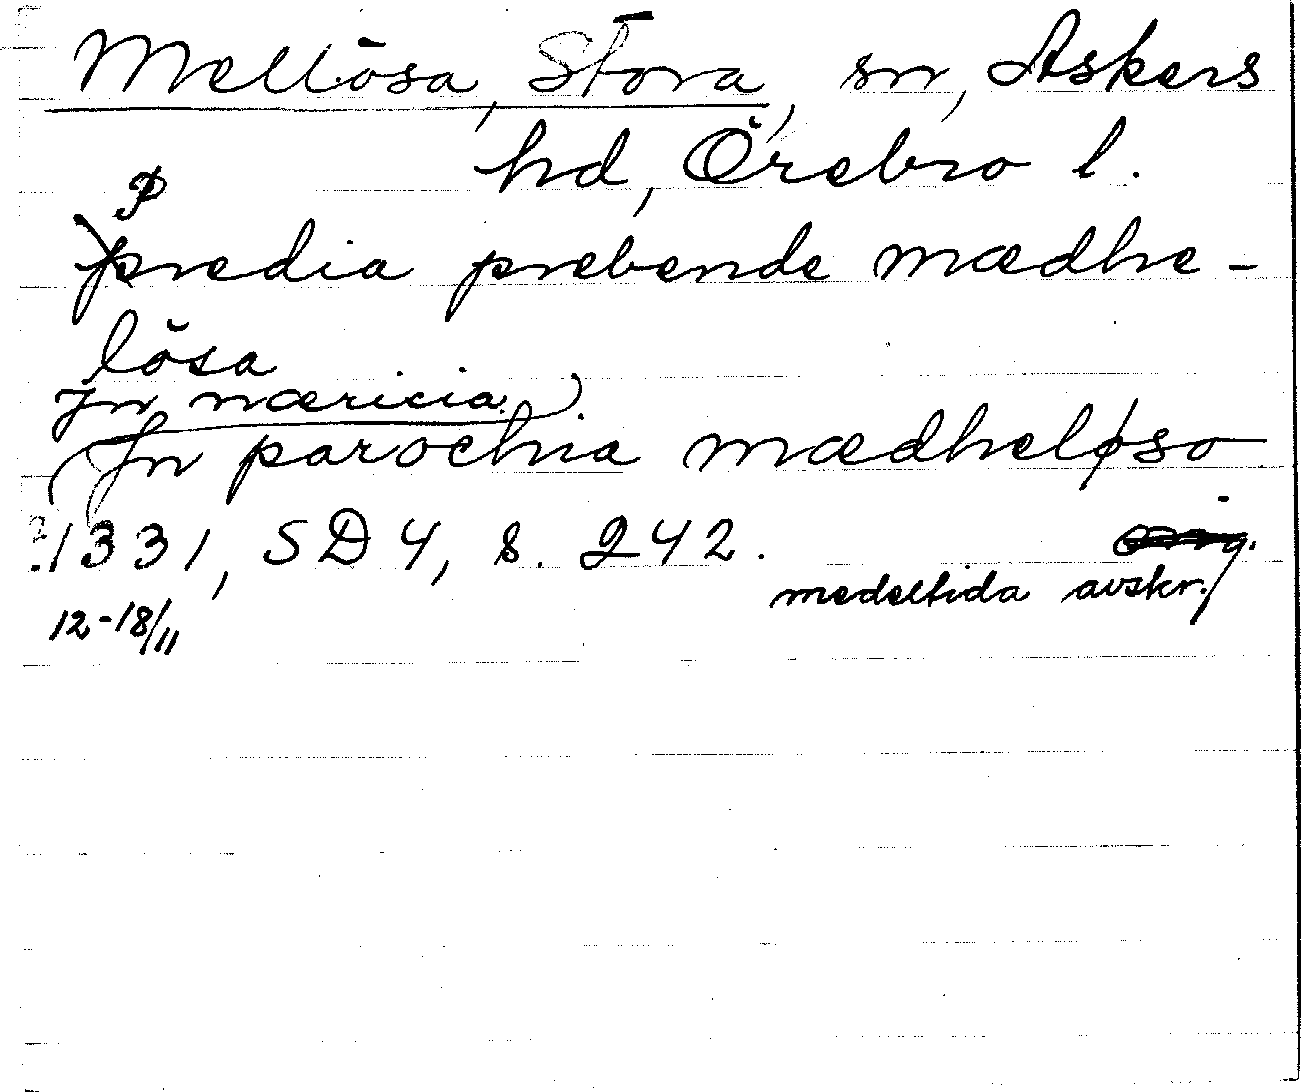 Mellösa, Stora, sn, Askers
hd, Örebro l.
P
predia prebende mædhe-
lösa
Jn næricia).
(Jn parochia mædheløso
1331, SD 4, s. 242.
medeltida avskr.
12-18/11